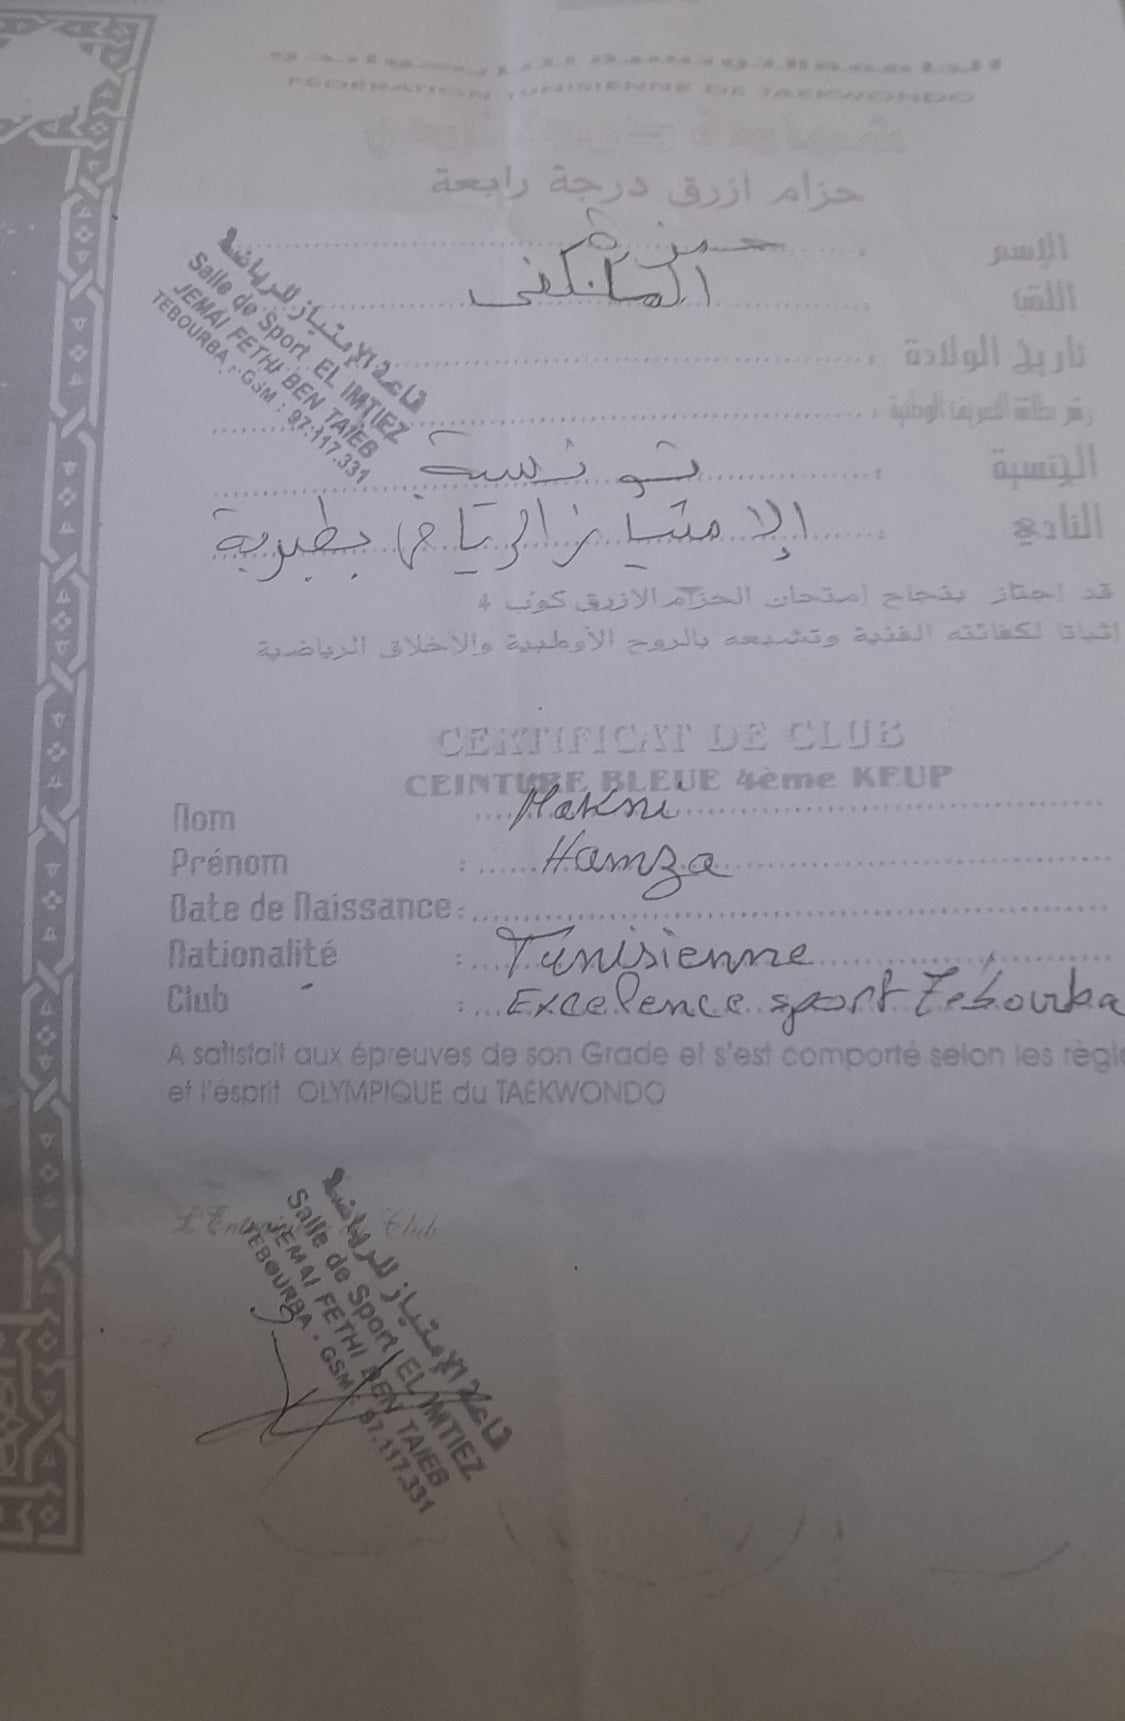 FEDERATION TUNISIENNE DE TAEKWONDO
حزام ازرق درجة رابعة
الإسم حمزة
اللقب
تاريخ الولادة
رقم بطاقة التعريف الوطنية
الجنسية تونسية
النادي الإمتياز الرياضي بطبربة
قاعة الإمتياز للرياضة
Salle de Sport EL IMTIEZ
JEMAI FETHI BEN TAIEB
TEBOURBA . GSM : 97.117.331
قد إجتاز بنجاح إمتحان الحزام الازرق كوب 4
اثباتا لكفائته الفنية وتشبعه بالروح الأولمبية والاخلاق الرياضية
CERTIFICAT DE CLUB
CEINTURE BLEUE 4ème KEUP
Nom Makni
Prénom : Hamza
Date de Naissance :
Nationalité : Tunisienne
Club : Excelence sport Tebourba
A satisfait aux épreuves de son Grade et s'est comporté selon les
et l'esprit OLYMPIQUE du TAEKWONDO
Club
قاعة الإمتياز للرياضة
Salle de Sport EL IMTIEZ
JEMAI FETHI BEN TAIEB
TEBOURBA . GSM : 97.117.331